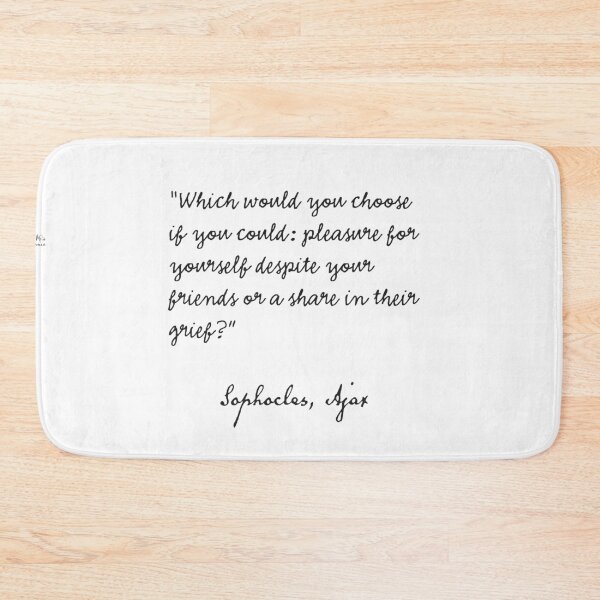 "Which would you choose
if you could: pleasure for
yourself despite your
friends or a share in their
grief?"
Sophocles, Ajax